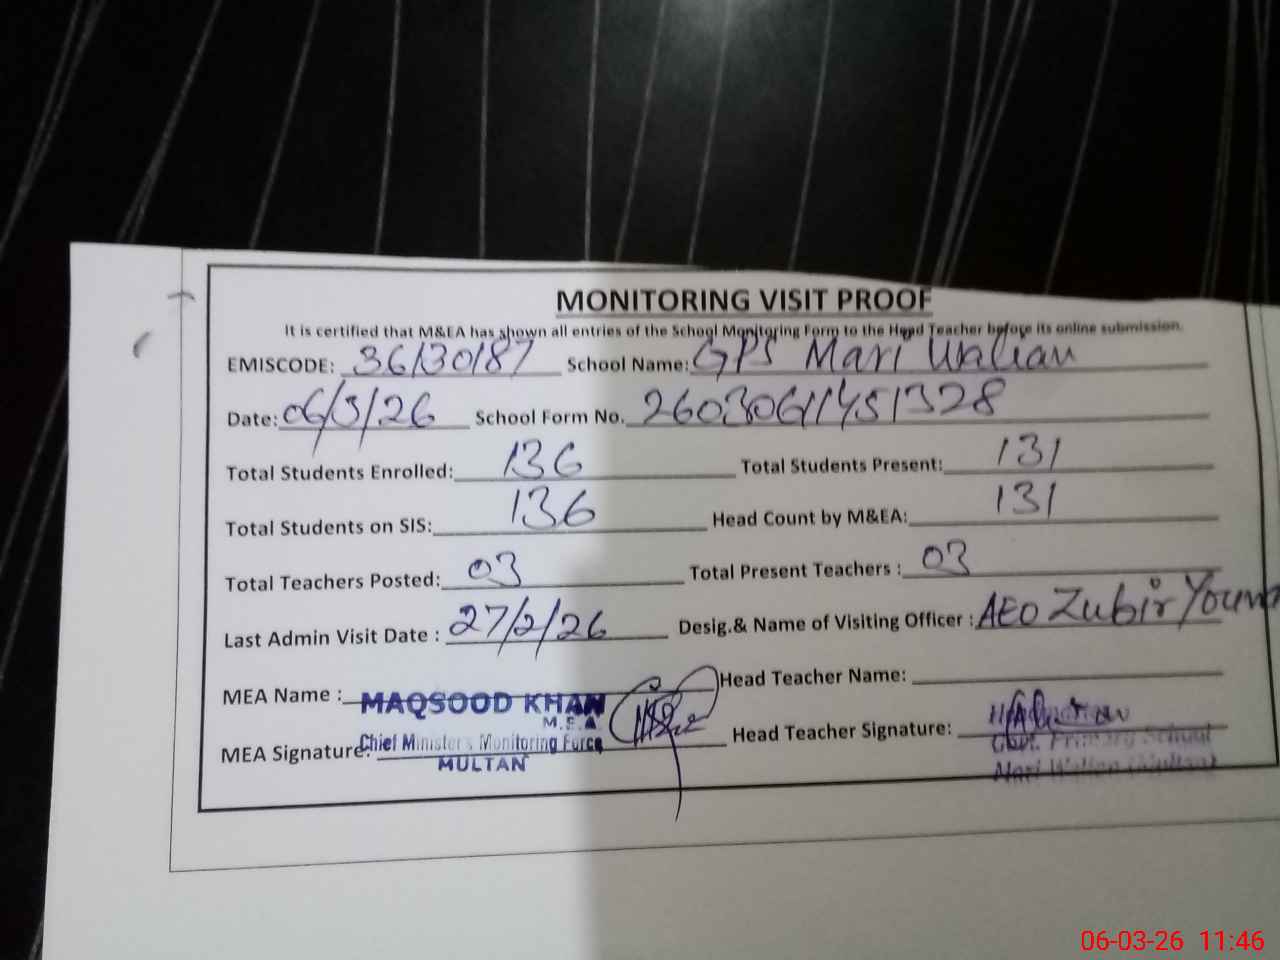 MONITORING VISIT PROOF
It is certified that M&EA has shown all entries of the School Monitoring Form to the Head Teacher before its online submission.
EMISCODE: 36130187 School Name: GPS Mari Walian
Date: 06/3/26 School Form No. 26030611451328
Total Students Enrolled: 136 Total Students Present: 131
Total Students on SIS: 136 Head Count by M&EA: 131
Total Teachers Posted: 03 Total Present Teachers : 03
Last Admin Visit Date : 27/2/26 Desig.& Name of Visiting Officer : AEO Zubir
MEA Name : MAQSOOD KHAN Head Teacher Name:
M.E.A
MEA Signature: Chief Minister's Monitoring Force Head Teacher Signature:
MULTAN
Govt. Primary School
Mari Walian (Multan)
06-03-26 11:46